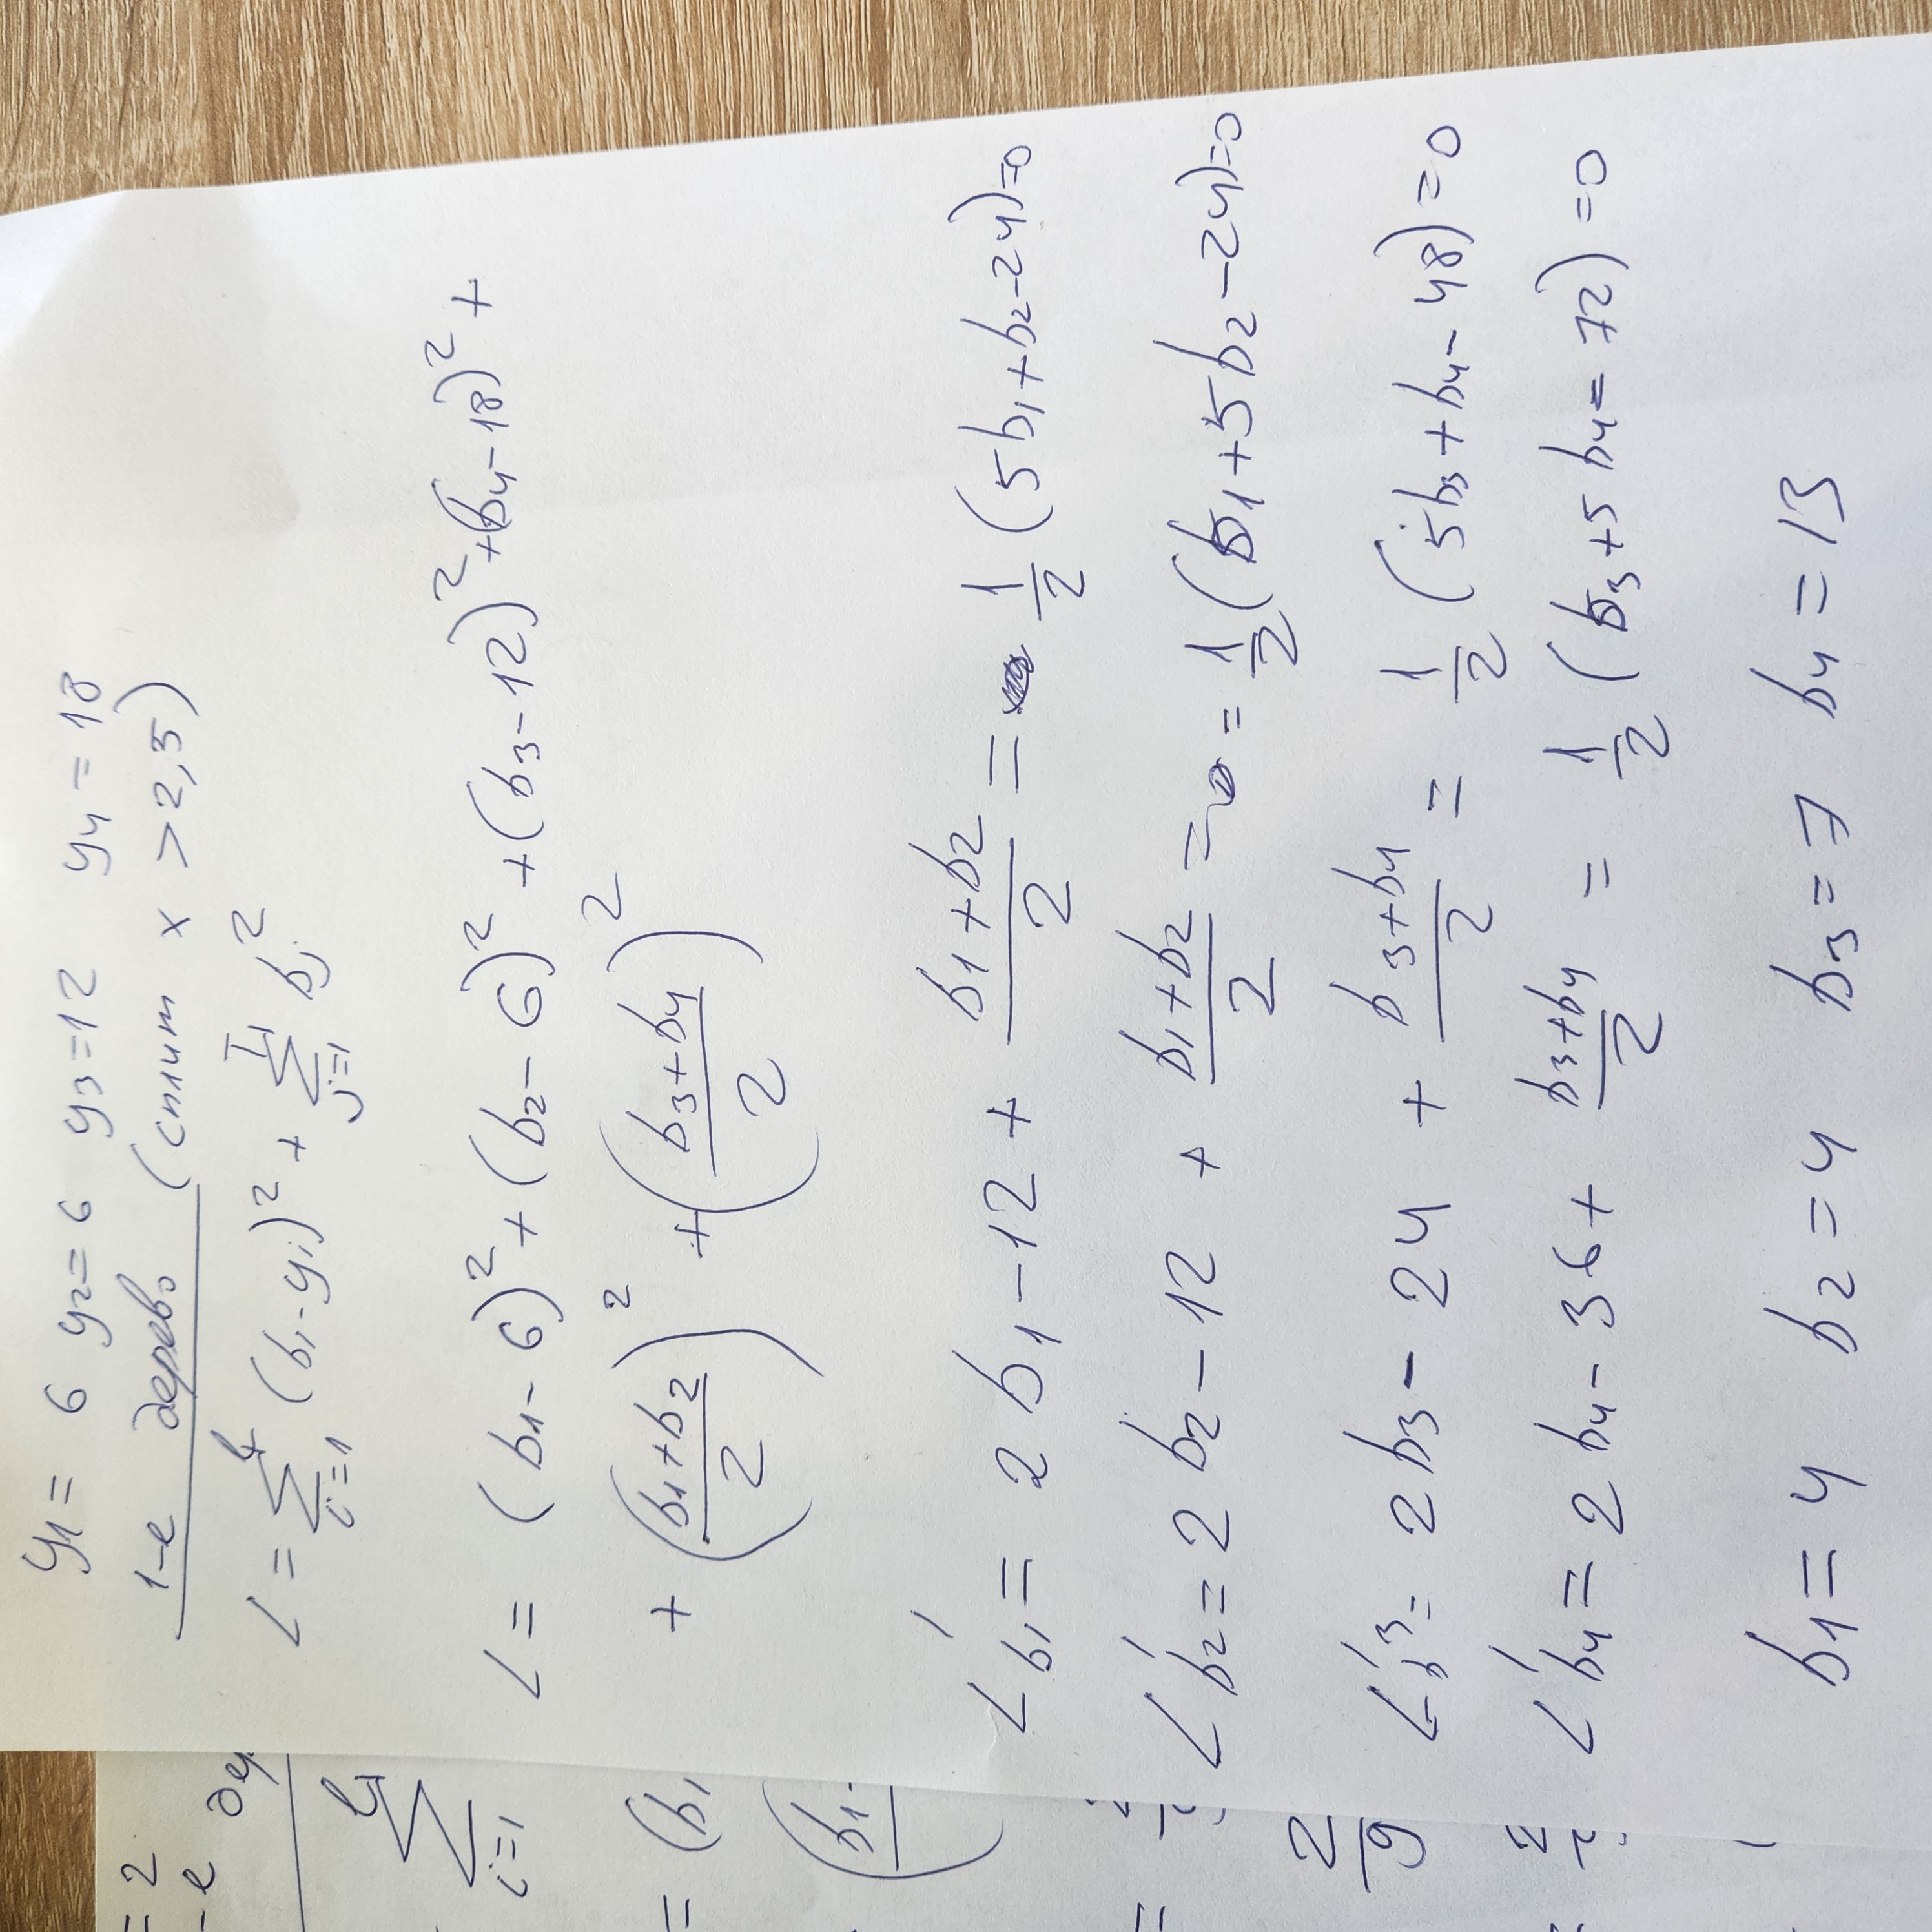 y1 = 6 y2 = 6 y3 = 12 y4 = 18
1-е дерево (сплит x > 2,5)
L = ∑_{i=1}^{4} (b_i - y_i)^2 + ∑_{j=1}^{T} b_j^2
L = (b1 - 6)^2 + (b2 - 6)^2 + (b3 - 12)^2 + (b4 - 18)^2 +
+ ((b1 + b2)/2)^2 + ((b3 + b4)/2)^2
L'b1 = 2b1 - 12 + (b1 + b2)/2 = 1/2 (5b1 + b2 - 24) = 0
L'b2 = 2b2 - 12 + (b1 + b2)/2 = 0 = 1/2 (b1 + 5b2 - 24) = 0
L'b3 = 2b3 - 24 + (b3 + b4)/2 = 1/2 (5b3 + b4 - 48) = 0
L'b4 = 2b4 - 36 + (b3 + b4)/2 = 1/2 (b3 + 5b4 = 72) = 0
b1 = 4 b2 = 4 b3 = 7 b4 = 13
= 2
-е дер
∑
i=1
= (b1
(b1 -
2
9